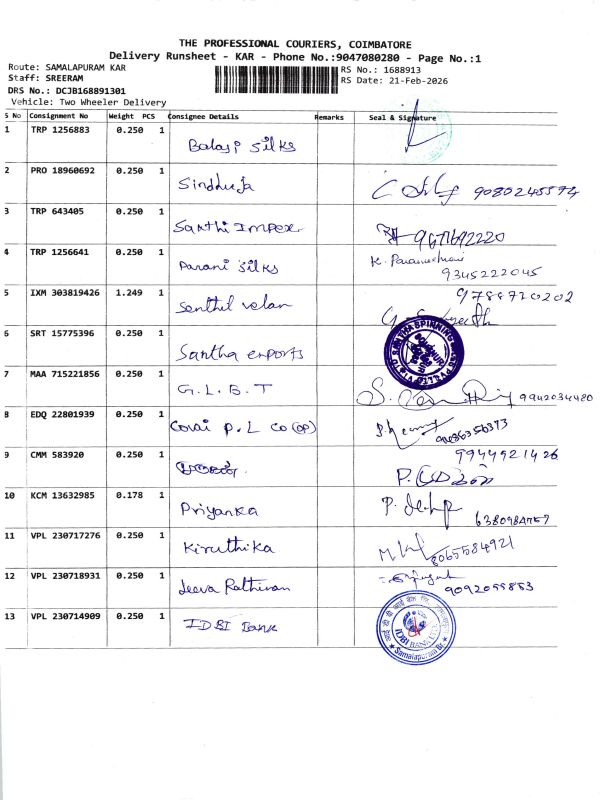 THE PROFESSIONAL COURIERS, COIMBATORE
Delivery Runsheet - KAR - Phone No.:9047080280 - Page No.:1
Route: SAMALAPURAM KAR
Staff: SREERAM
DRS No.: DCJB168891301
Vehicle: Two Wheeler Delivery
RS No.: 1688913
RS Date: 21-Feb-2026
S No Consignment No Weight PCS Consignee Details Remarks Seal & Signature
1 TRP 1256883 0.250 1 Balaji Silks
2 PRO 18960692 0.250 1 Sindhuja 9080245594
3 TRP 643405 0.250 1 Santhi Impex 9671692220
4 TRP 1256641 0.250 1 Parani Silks K. Parameshwari
9345222045
5 IXM 303819426 1.249 1 Senthil velan 9788720202
6 SRT 15775396 0.250 1 Santha exports
7 MAA 715221856 0.250 1 G.L.B.T 9942034480
8 EDQ 22801939 0.250 1 Covai P.L Co (OP)
9 CMM 583920 0.250 1 9944921426
10 KCM 13632985 0.178 1 Priyanka
11 VPL 230717276 0.250 1 Kiruthika 8065584921
12 VPL 230718931 0.250 1 Jeeva Rathinam 9092055853
13 VPL 230714909 0.250 1 IDBI Bank IDBI BANK Samalapuram Br